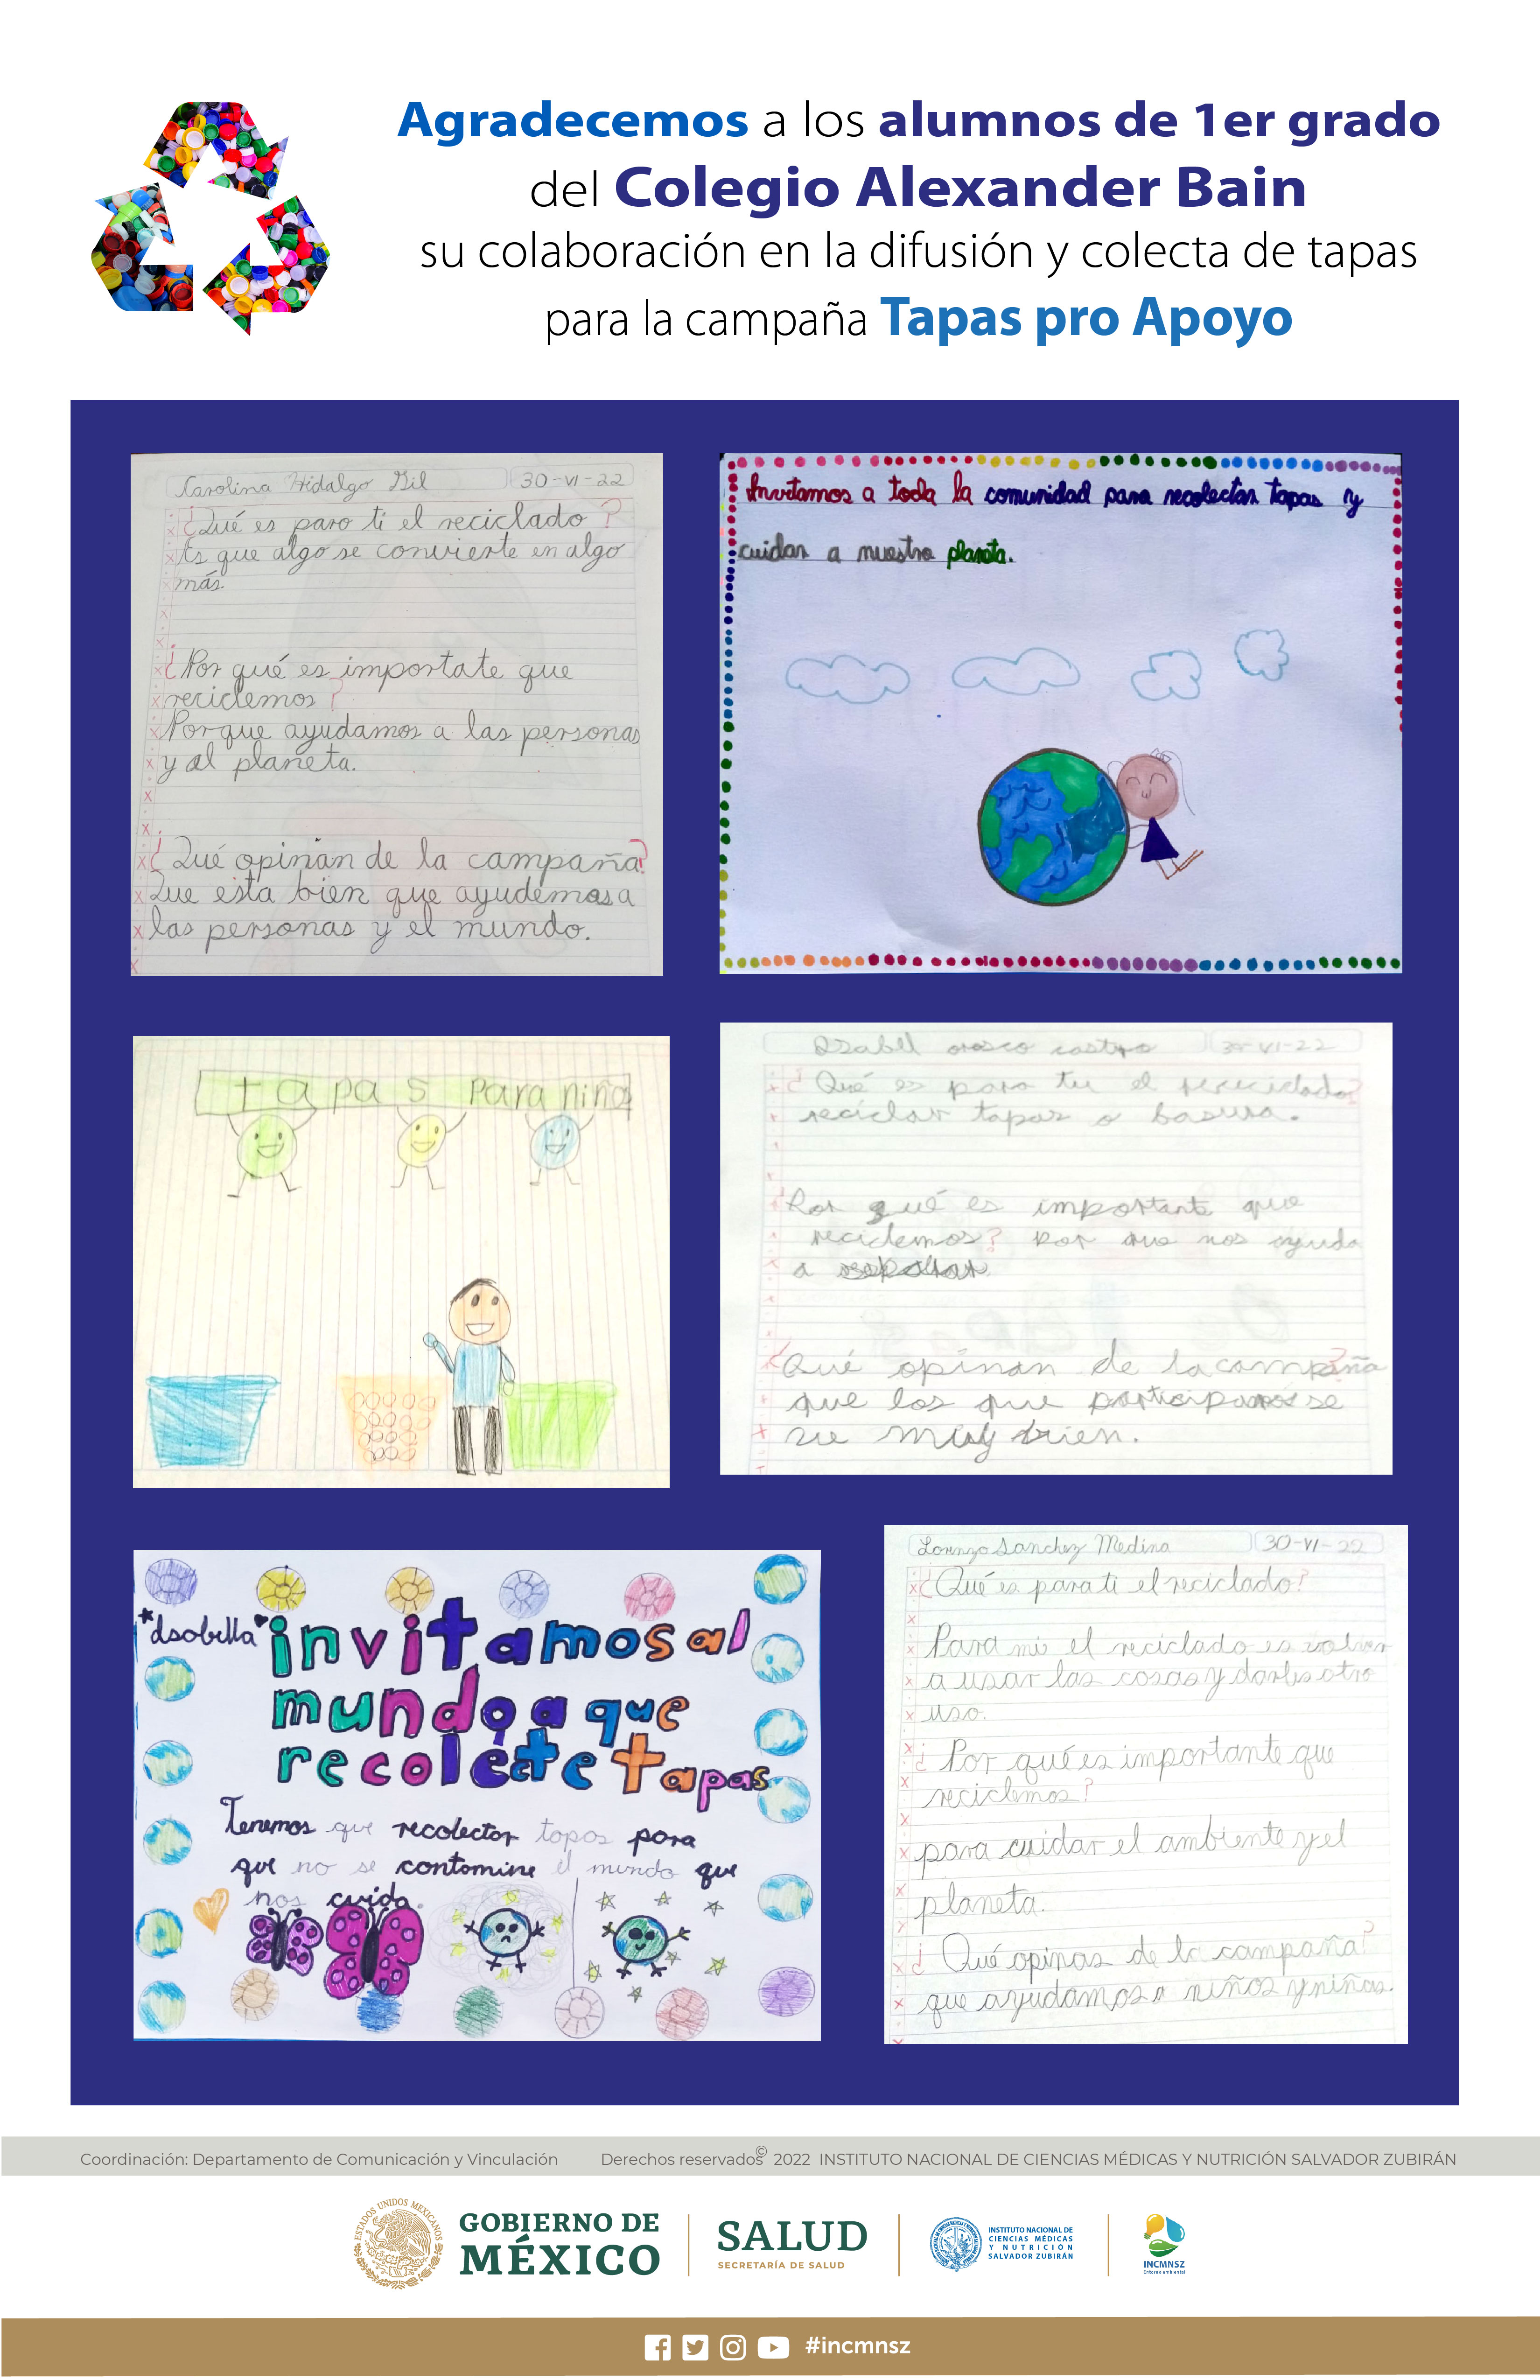 Agradecemos a los alumnos de 1er grado
del Colegio Alexander Bain
su colaboración en la difusión y colecta de tapas
para la campaña Tapas pro Apoyo
Carolina Hidalgo Gil 30-VI-22
¿Qué es paro ti el reciclado?
Es que algo se convierte en algo
más.
¿Por qué es importate que
reciclemos?
Porque ayudamos a las personas
y al planeta.
¿Qué opinan de la campaña?
Que esta bien que ayudemos a
las personas y el mundo.
Invitamos a toda la comunidad para recolectar tapas y
cuidar a nuestro planeta.
tapas para niños
Isabel orosco castro 30-VI-22
¿Qué es para tu el rereciclado?
reciclar tapas o basura.
Por qué es importante que
reciclemos? Por que nos ayuda
a
¿Qué opinan de la campaña?
que los que participamos se
ve muy bien.
*Isabella♥ invitamos al
mundo a que
recolecte tapas
Tenemos que recolector topos para
que no se contomine el mundo que
nos cuida.
Lorenzo Sanchez Medina 30-VI-22
¿Qué es para ti el reciclado?
Para mi el reciclado es volver
a usar las cosas y darles otro
uso.
¿Por qué es importante que
reciclemos?
para cuidar el ambiente y el
planeta.
¿Qué opinas de la campaña?
que ayudamos a niños y niñas.
Coordinación: Departamento de Comunicación y Vinculación Derechos reservados © 2022 INSTITUTO NACIONAL DE CIENCIAS MÉDICAS Y NUTRICIÓN SALVADOR ZUBIRÁN
ESTADOS UNIDOS MEXICANOS
GOBIERNO DE
MÉXICO
SALUD
SECRETARÍA DE SALUD
INSTITUTO NACIONAL DE
CIENCIAS MÉDICAS
Y NUTRICIÓN
SALVADOR ZUBIRÁN
INCMNSZ
#incmnsz